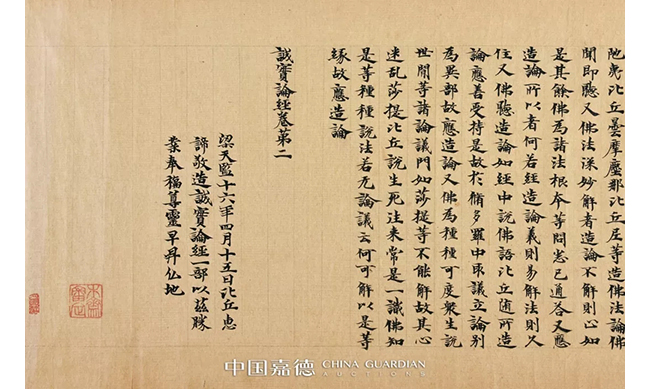 陁夷比丘曇摩塵那比丘尼等造佛法論佛
聞即聽又佛法深妙解者造論不解則止如
是其餘佛為諸法根本等問悉已通答又應
造論所以者何若經造論義則易解法則久
住又佛聽造論如經中說佛語比丘随所造
論應善受持是故於脩多羅中取議立論別
為異部故應造論又佛為種種可度衆生說
世間等諸論議門如莎提等不能解故其心
迷乱莎提比丘說生死往来常是一識佛知
是等種種說法若无論議云何可解以是等
緣故應造論
誠實論經卷第二
梁天監十六年四月十五日比丘惠
諦敬造誠實論經一部以兹勝
業奉福尊靈早昇仏地
中国嘉德 CHINA GUARDIAN
AUCTIONS